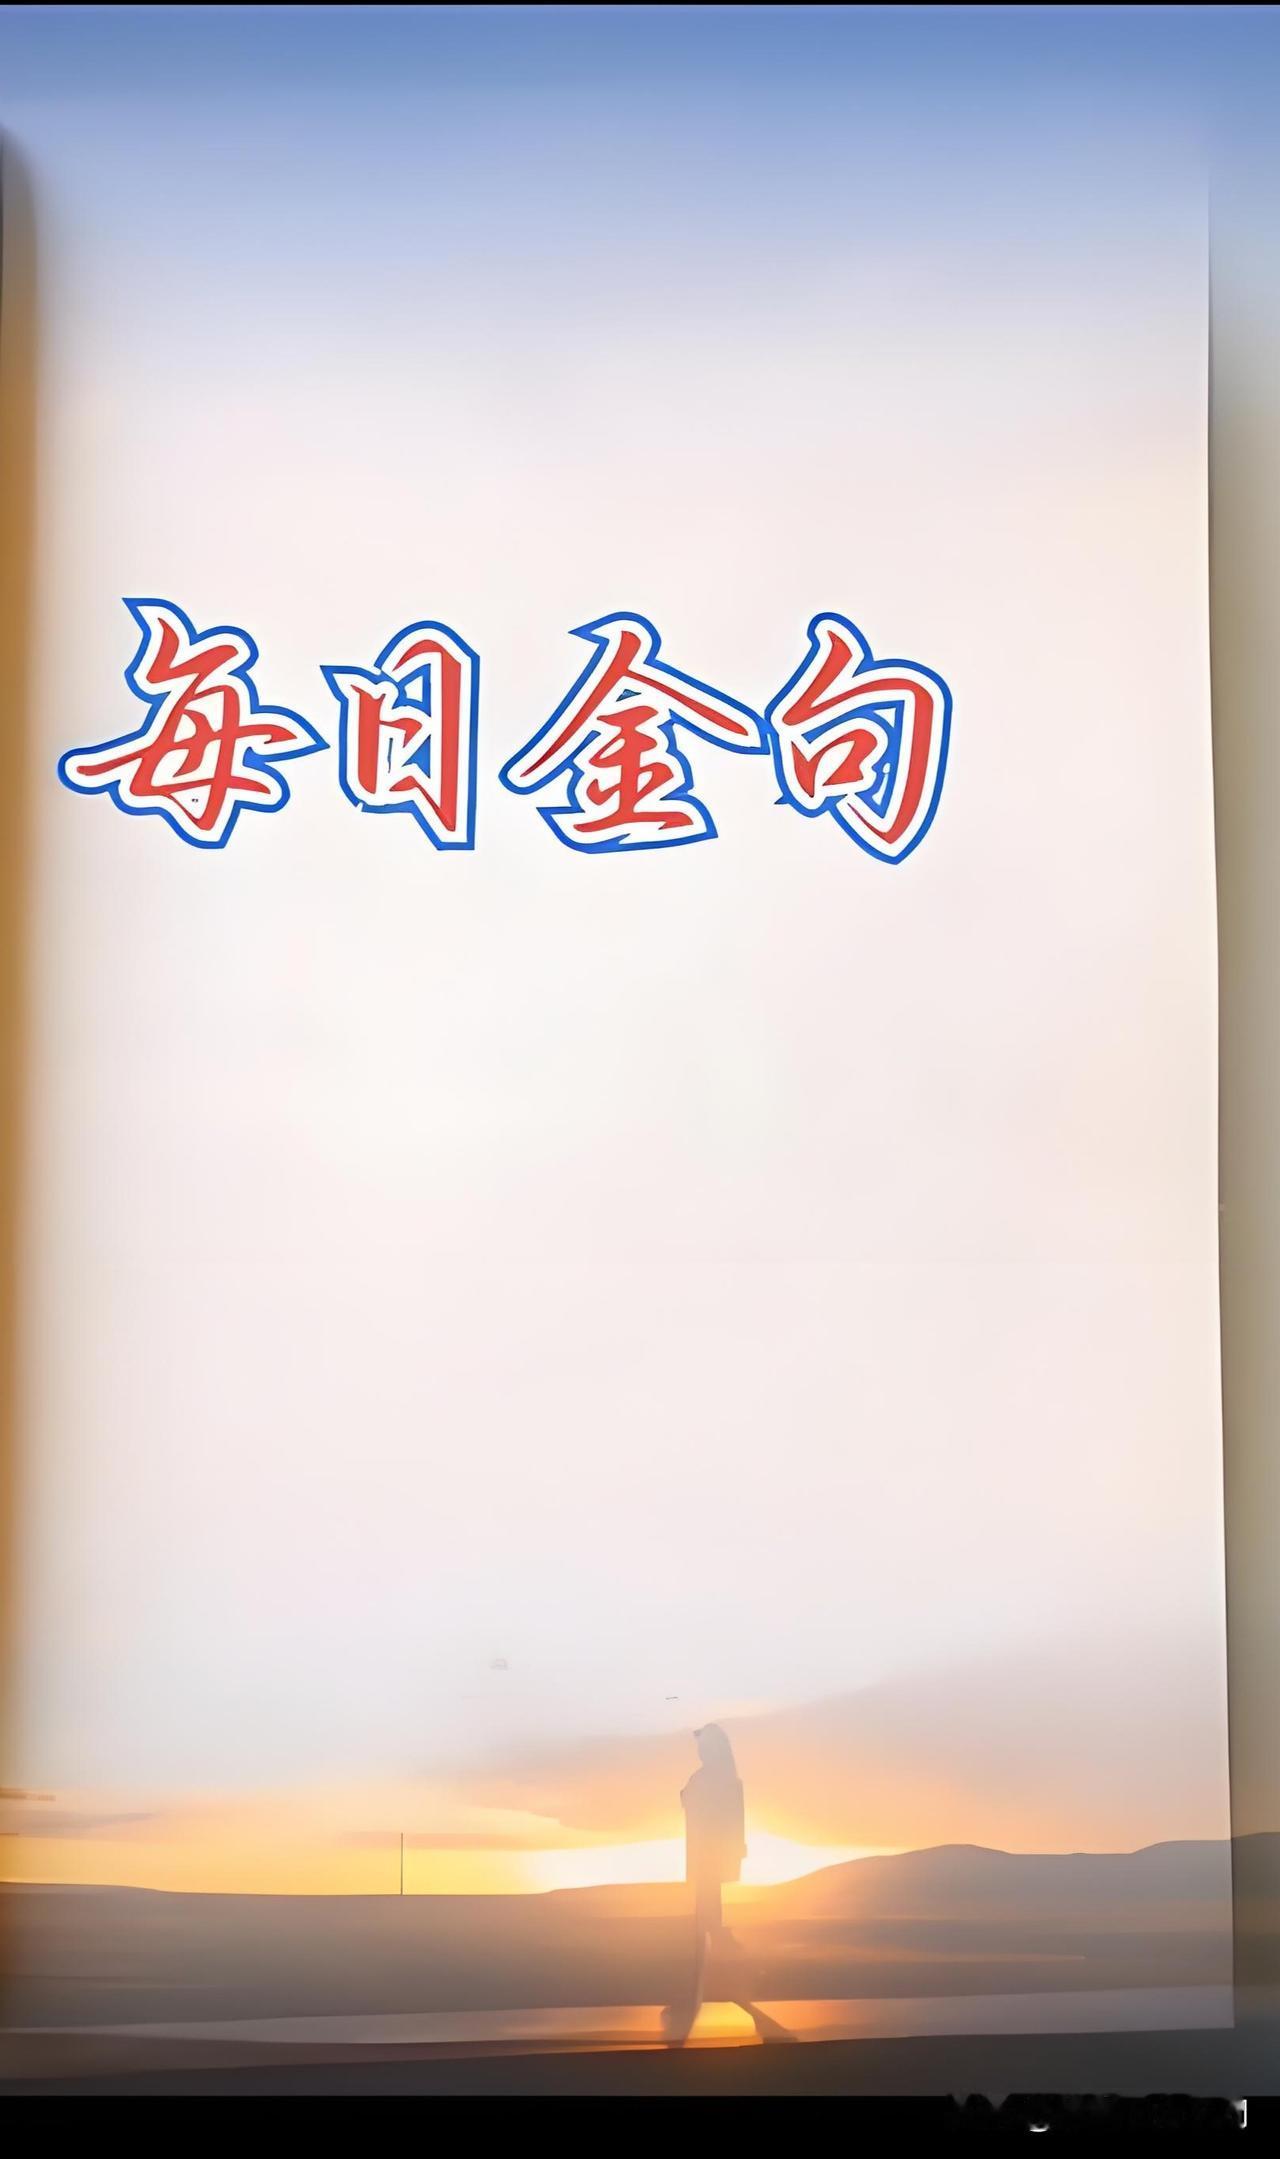 每日金句